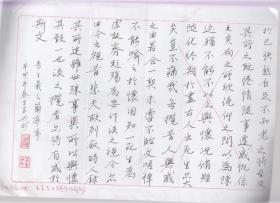 於己快然自足不知老之將至及
其所之既倦情隨事遷感慨係
之矣向之所欣俛仰之間以為陳
迹猶不能不以之興懷況脩短
隨化終期於盡古人云死生亦大
矣豈不痛哉每攬昔人興感
之由若合一契未嘗不臨文嗟悼
不能喻之於懷固知一死生為
虛誕齊彭殤為妄作後之視今亦
由今之視昔悲夫故列敘時人錄
其所述雖世殊事異所以興懷
其致一也後之攬者亦將有感於
斯文
晉王羲之蘭亭序